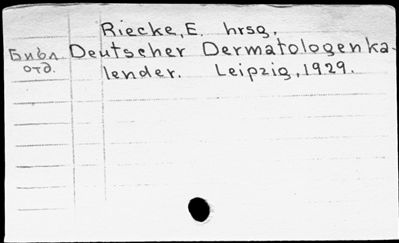 Riecke, E. hrsg.
Библ Deutscher Dermatologenka-
отд. lender. Leipzig, 1929.